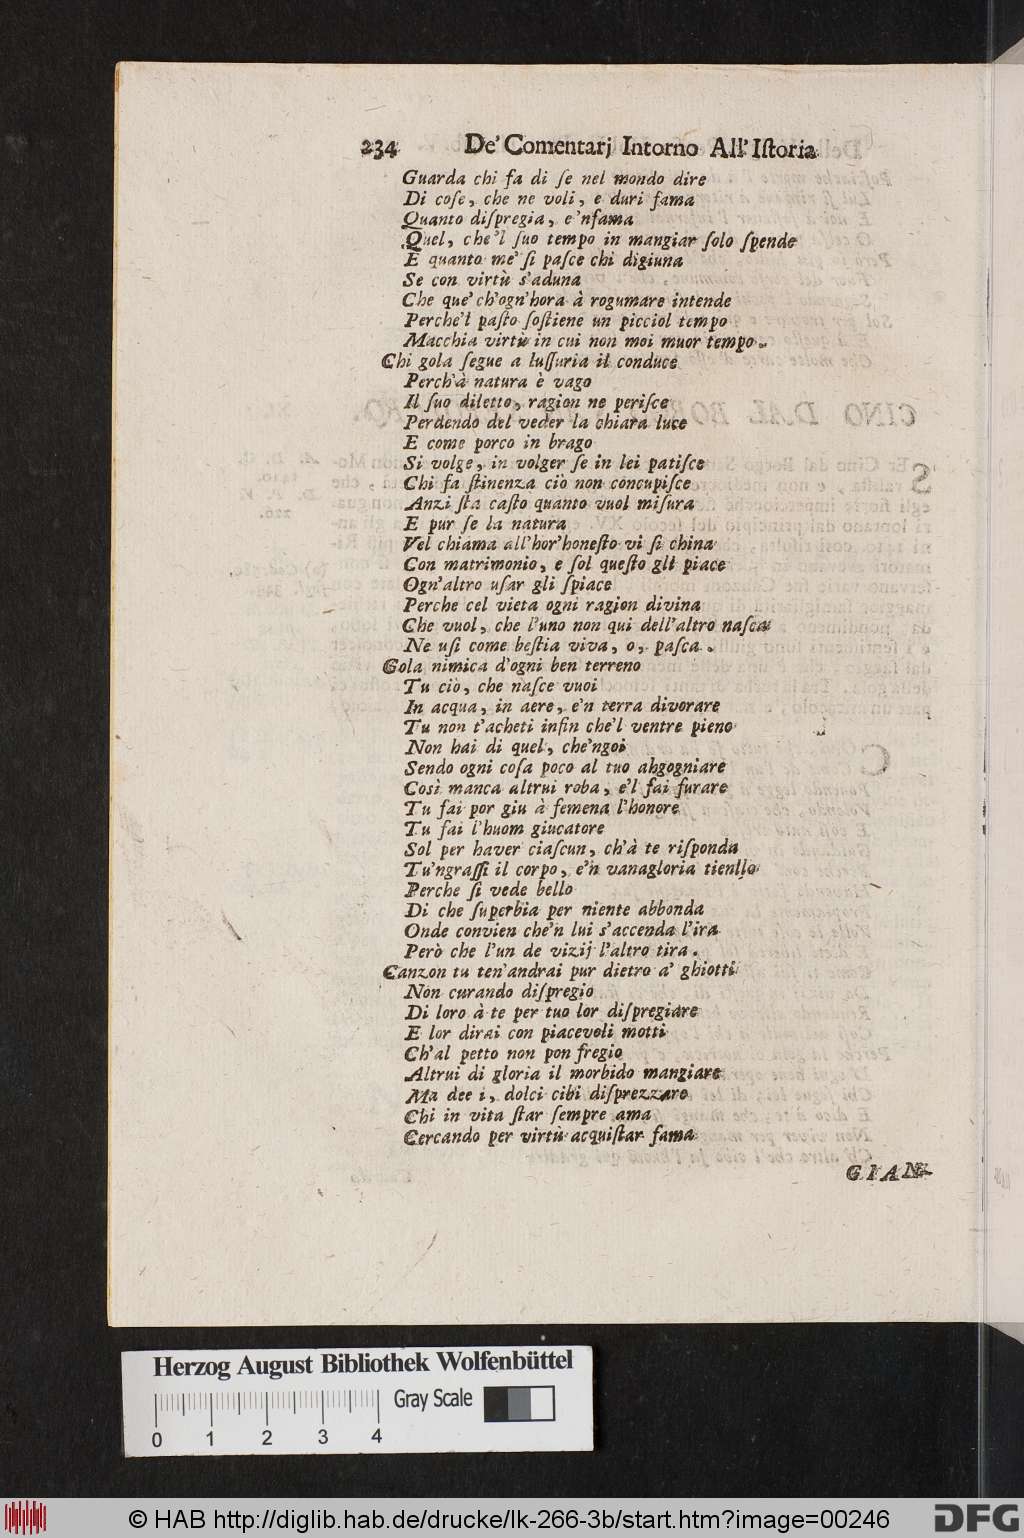 234 De' Comentarj Intorno All' Iſtoria
Guarda chi fa di ſe nel mondo dire
Di coſe, che ne voli, e duri fama
Quanto diſpregia, e'nfama
Quel, che'l ſuo tempo in mangiar ſolo ſpende
E quanto me' ſi paſce chi digiuna
Se con virtù s'aduna
Che que' ch'ogn'hora à rogumare intende
Perche'l paſto ſoſtiene un picciol tempo
Macchia virtù in cui non moi muor tempo.
Chi gola ſegue a luſſuria il conduce
Perch'à natura è vago
Il ſuo diletto, ragion ne periſce
Perdendo del veder la chiara luce
E come porco in brago
Si volge, in volger ſe in lei patiſce
Chi fa ſtinenza ciò non concupiſce
Anzi ſta caſto quanto vuol miſura
E pur ſe la natura
Vel chiama all'hor'honeſto vi ſi china
Con matrimonio, e ſol queſto gli piace
Ogn'altro uſar gli ſpiace
Perche cel vieta ogni ragion divina
Che vuol, che l'uno non qui dell'altro naſca
Ne uſi come beſtia viva, o, paſca.
Gola nimica d'ogni ben terreno
Tu ciò, che naſce vuoi
In acqua, in aere, e'n terra divorare
Tu non t'acheti infin che'l ventre pieno
Non hai di quel, che'ngoi
Sendo ogni coſa poco al tuo ahgogniare
Così manca altrui roba, e'l fai furare
Tu fai por giu à femena l'honore
Tu fai l'huom giucatore
Sol per haver ciaſcun, ch'à te riſponda
Tu'ngraſſi il corpo, e'n vanagloria tienllo
Perche ſi vede bello
Di che ſuperbia per niente abbonda
Onde convien che'n lui s'accenda l'ira
Però che l'un de vizij l'altro tira.
Canzon tu ten'andrai pur dietro a' ghiotti
Non curando diſpregio
Di loro à te per tuo lor diſpregiare
E lor dirai con piacevoli motti
Ch'al petto non pon fregio
Altrui di gloria il morbido mangiare
Ma dee i, dolci cibi diſprezzare
Chi in vita ſtar ſempre ama
Cercando per virtù acquiſtar fama
GIAN-
Herzog August Bibliothek Wolfenbüttel
Gray Scale
0 1 2 3 4
© HAB http://diglib.hab.de/drucke/lk-266-3b/start.htm?image=00246
DFG